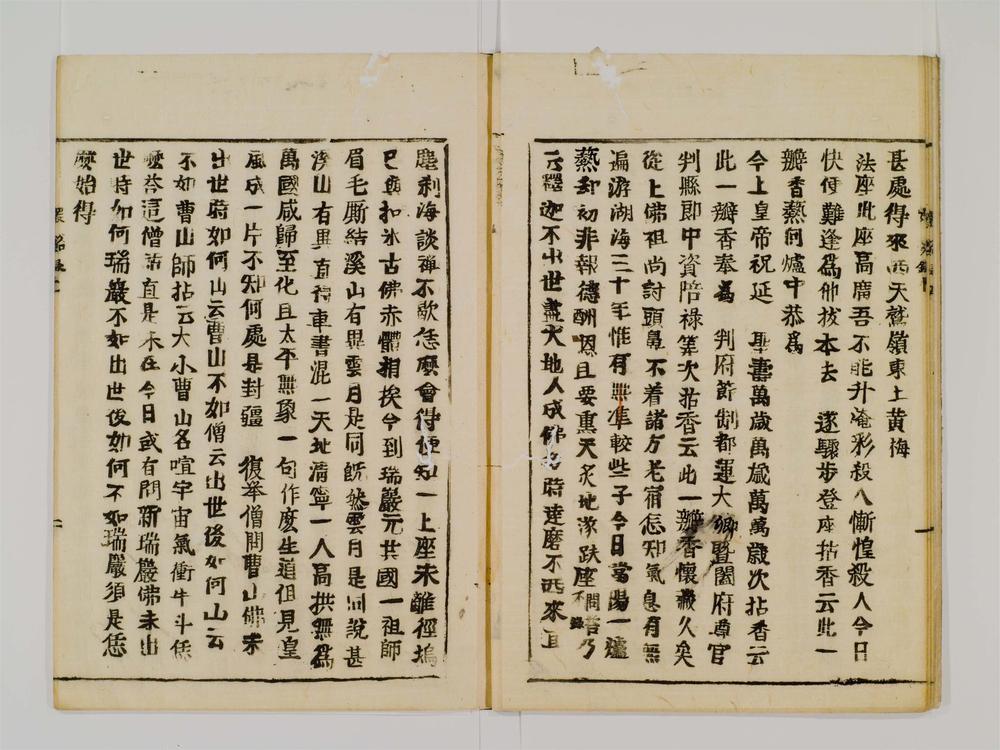 甚處得來西天鷲嶺東土黃梅
法座此座高廣吾不能升淹彩殺人慚惶殺人今日
快便難逢為伊拔本去　遂驟步登座拈香云此一
瓣香爇向爐中恭為
今上皇帝祝延　聖壽萬歲萬歲萬萬歲次拈香云
此一瓣香奉為　判府節制都運大卿暨闔府尊官
判縣郎中資陪祿筭次拈香云此一瓣香懷藏久矣
從上佛祖尚討頭鼻不着諸方老宿怎知氣息有無
遍游湖海三十年惟有無準較些子今日當陽一爐
爇却初非報德酬恩且要熏天炙地遂趺座問答不錄乃
云釋迦不出世盡大地人成佛多時達磨不西來直
塵剎海談禪不歇恁麼會得便知一上座未離徑塢
已與扣氷古佛赤體相挨今到瑞巖元共國一祖師
眉毛厮結溪山有異雲月是同旣然雲月是同說甚
溪山有異直得車書混一天地清寧一人高拱無為
萬國咸歸至化且太平無象一句作麼生道但見皇
風成一片不知何處是封疆　復舉僧問曹山佛未
出世時如何山云曹山不如僧云出世後如何山云
不如曹山師拈云大小曹山名喧宇宙氣衝牛斗恁
麼荅這僧話直是未在今日或有問新瑞巖佛未出
世時如何瑞巖不如出世後如何不如瑞巖須是恁
麼始得